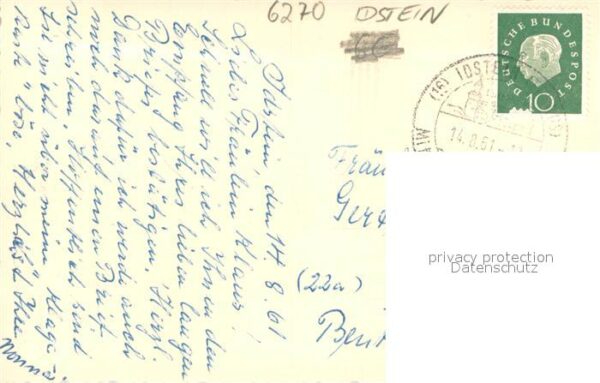 6270 IDSTEIN
DEUTSCHE BUNDESPOST
10
(16) IDSTE
14.8.61
Idstein, den 14.8.61
Liebes Fräulein Klaus!
Schnell will ich Ihnen den
Empfang Ihres lieben langen
Briefes bestätigen. Herzl.
Dank dafür, ich werde auch
noch darauf einen Brief
schreiben. Hoffentlich sind
Sie nicht über meine
böse. Herzlichst Ihre
Fräu
Gerd
(22a)
privacy protection
Datenschutz